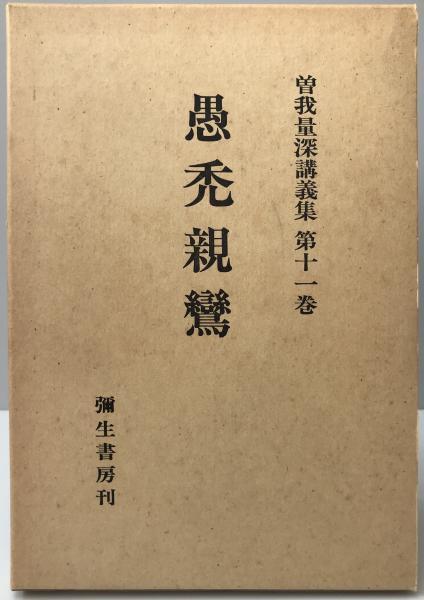 曽我量深講義集 第十一巻
愚禿親鸞
彌生書房刊